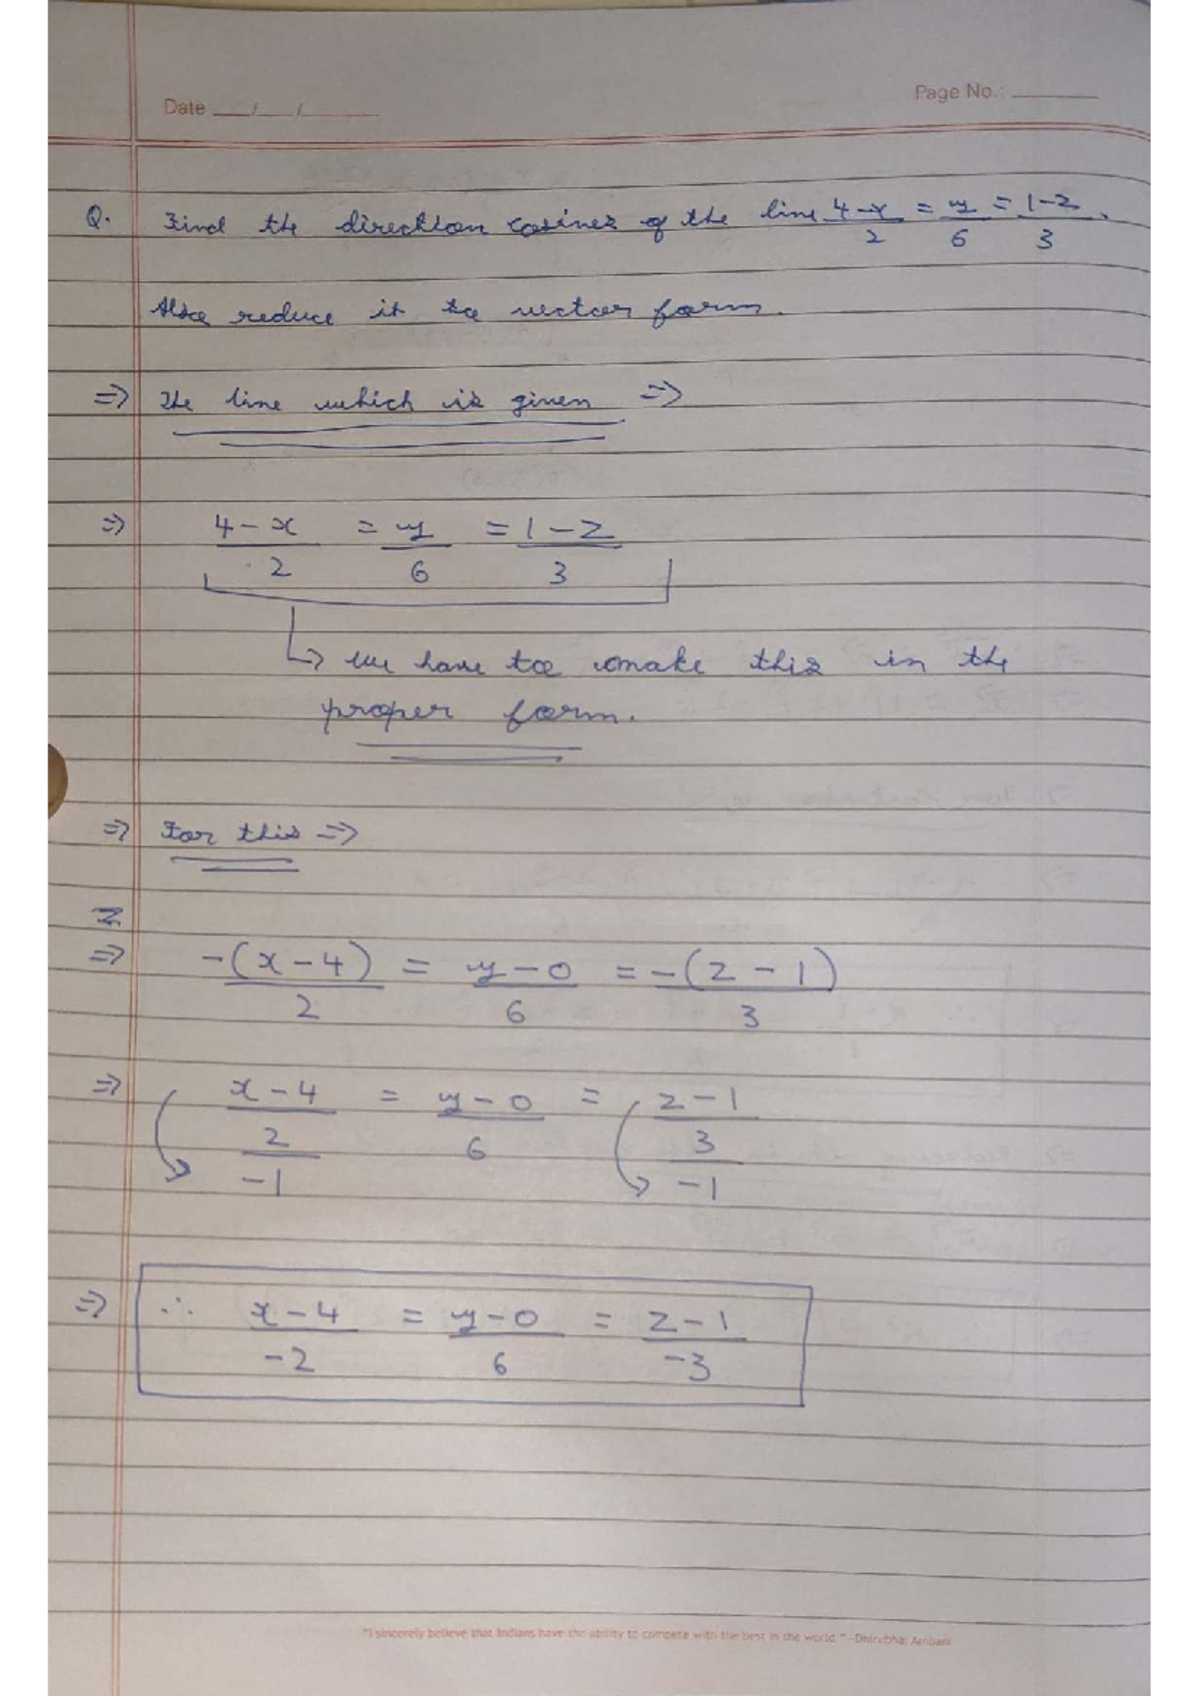 Date __/__/____
Page No.: ____
Q. Find the direction cosines of the line (4-x)/2 = y/6 = (1-z)/3.
Also reduce it to vector form.
=> The line which is given =>
=> (4-x)/2 = y/6 = (1-z)/3
↳ we have to make this in the
proper form.
=> For this =>
=> -(x-4)/2 = (y-0)/6 = -(z-1)/3
=> (x-4)/(2/-1) = (y-0)/6 = (z-1)/(3/-1)
=> ∴ (x-4)/-2 = (y-0)/6 = (z-1)/-3
"I sincerely believe that Indians have the ability to compete with the best in the world." -Dhirubhai Ambani